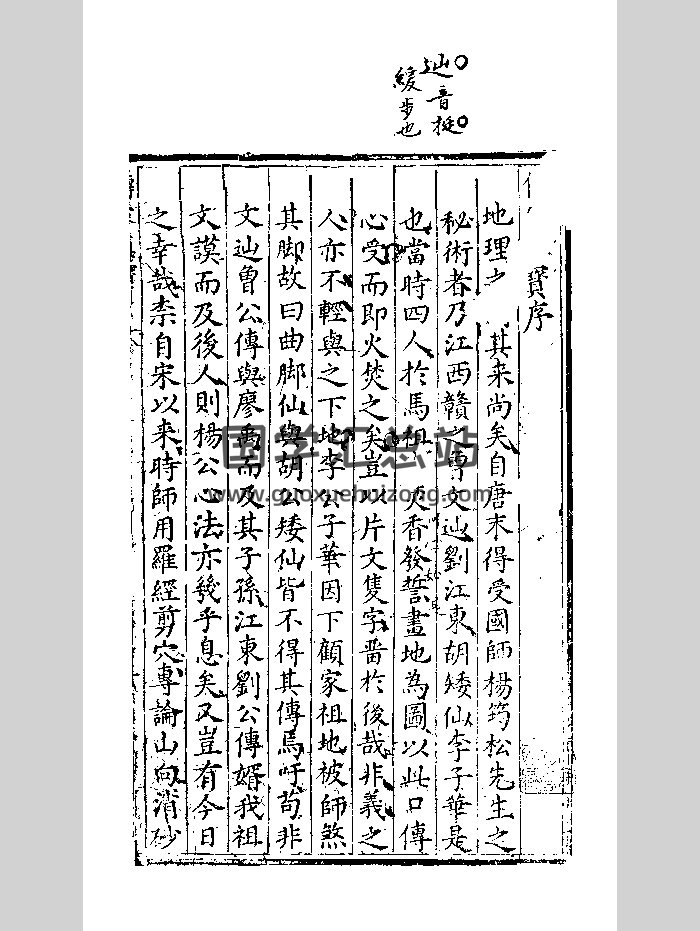 辿音挻
緩步也
寶序
地理之 其来尚矣自唐末得受國師楊筠松先生之
秘術者乃江西贛之曾文辿劉江東胡矮仙李子華是
也當時四人於馬祖 焚香發誓畫地為圖以此口傳
心受而即火焚之矣豈以片文隻字啚於後哉非義之
人亦不輕與之下地李公子華因下顧家祖地被師煞
其脚故曰曲脚仙與胡公矮仙皆不得其傳馬吁苟非
文辿曾公傳與廖禹而及其子孫江東劉公傳婿我祖
文謨而及後人則楊公心法亦幾乎息矣又豈有今日
之幸哉柰自宋以来時師用羅經剪穴專論山向消砂
国学汇总站
www.guoxuehuizong.com